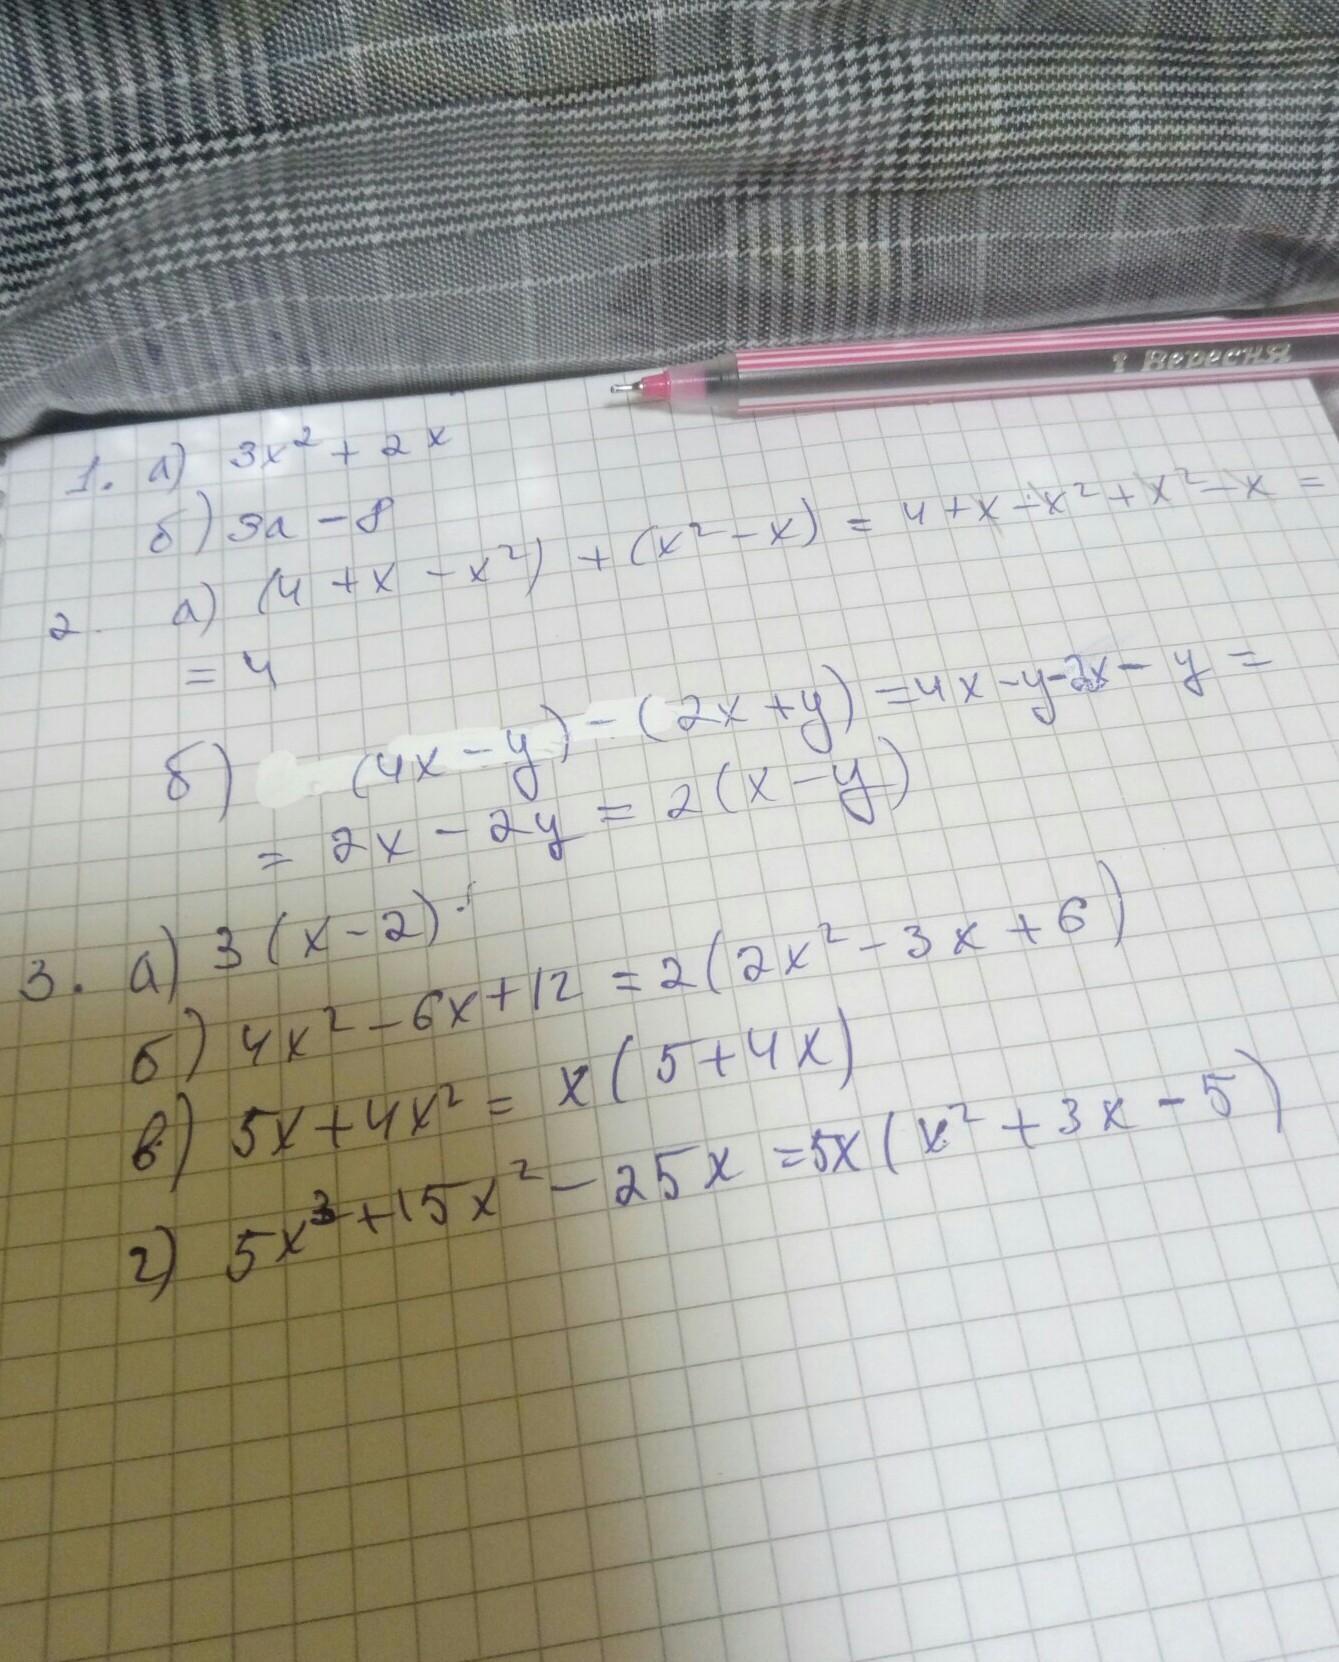 1 Вересня
1. а) 3x² + 2x
б) 3a - 8
2. а) (4 + x - x²) + (x² - x) = 4 + x - x² + x² - x =
= 4
б) (4x - y) - (2x + y) = 4x - y - 2x - y =
= 2x - 2y = 2(x - y)
3. а) 3(x - 2)
б) 4x² - 6x + 12 = 2(2x² - 3x + 6)
в) 5x + 4x² = x(5 + 4x)
г) 5x³ + 15x² - 25x = 5x(x² + 3x - 5)